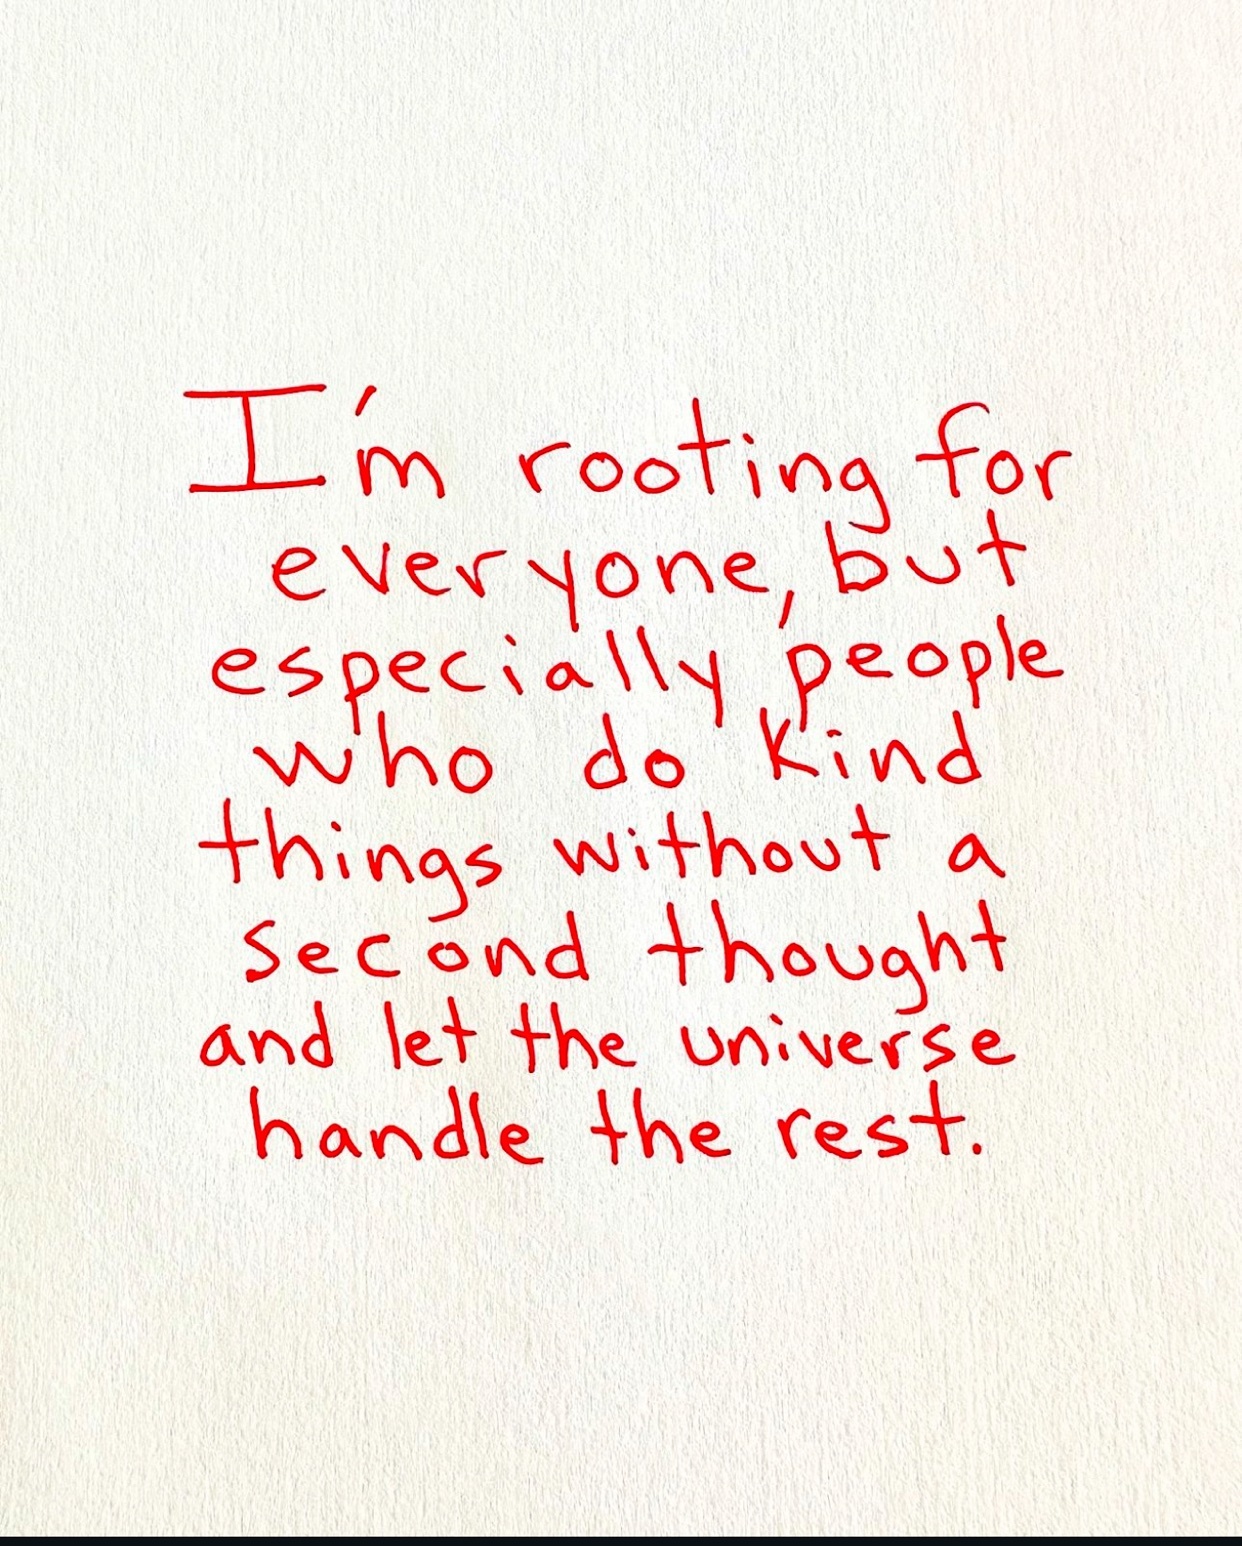 I'm rooting for
everyone, but
especially people
who do kind
things without a
second thought
and let the universe
handle the rest.